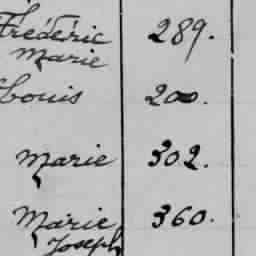 Frédéric 289.
Marie
Louis 200.
Marie 302.
Marie 360.
Joseph